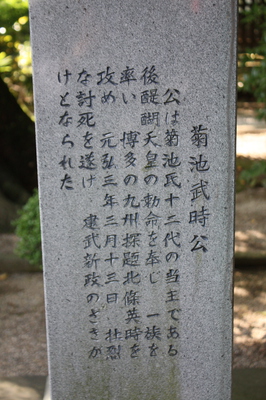 菊池武時公
公は菊池氏十二代の当主である
後醍醐天皇の勅命を奉じ 一族を
率い 博多の九州探題北條英時を
攻め 元弘三年三月十三日 壮烈
な討死を遂げ 建武新政のさきが
けとなられた